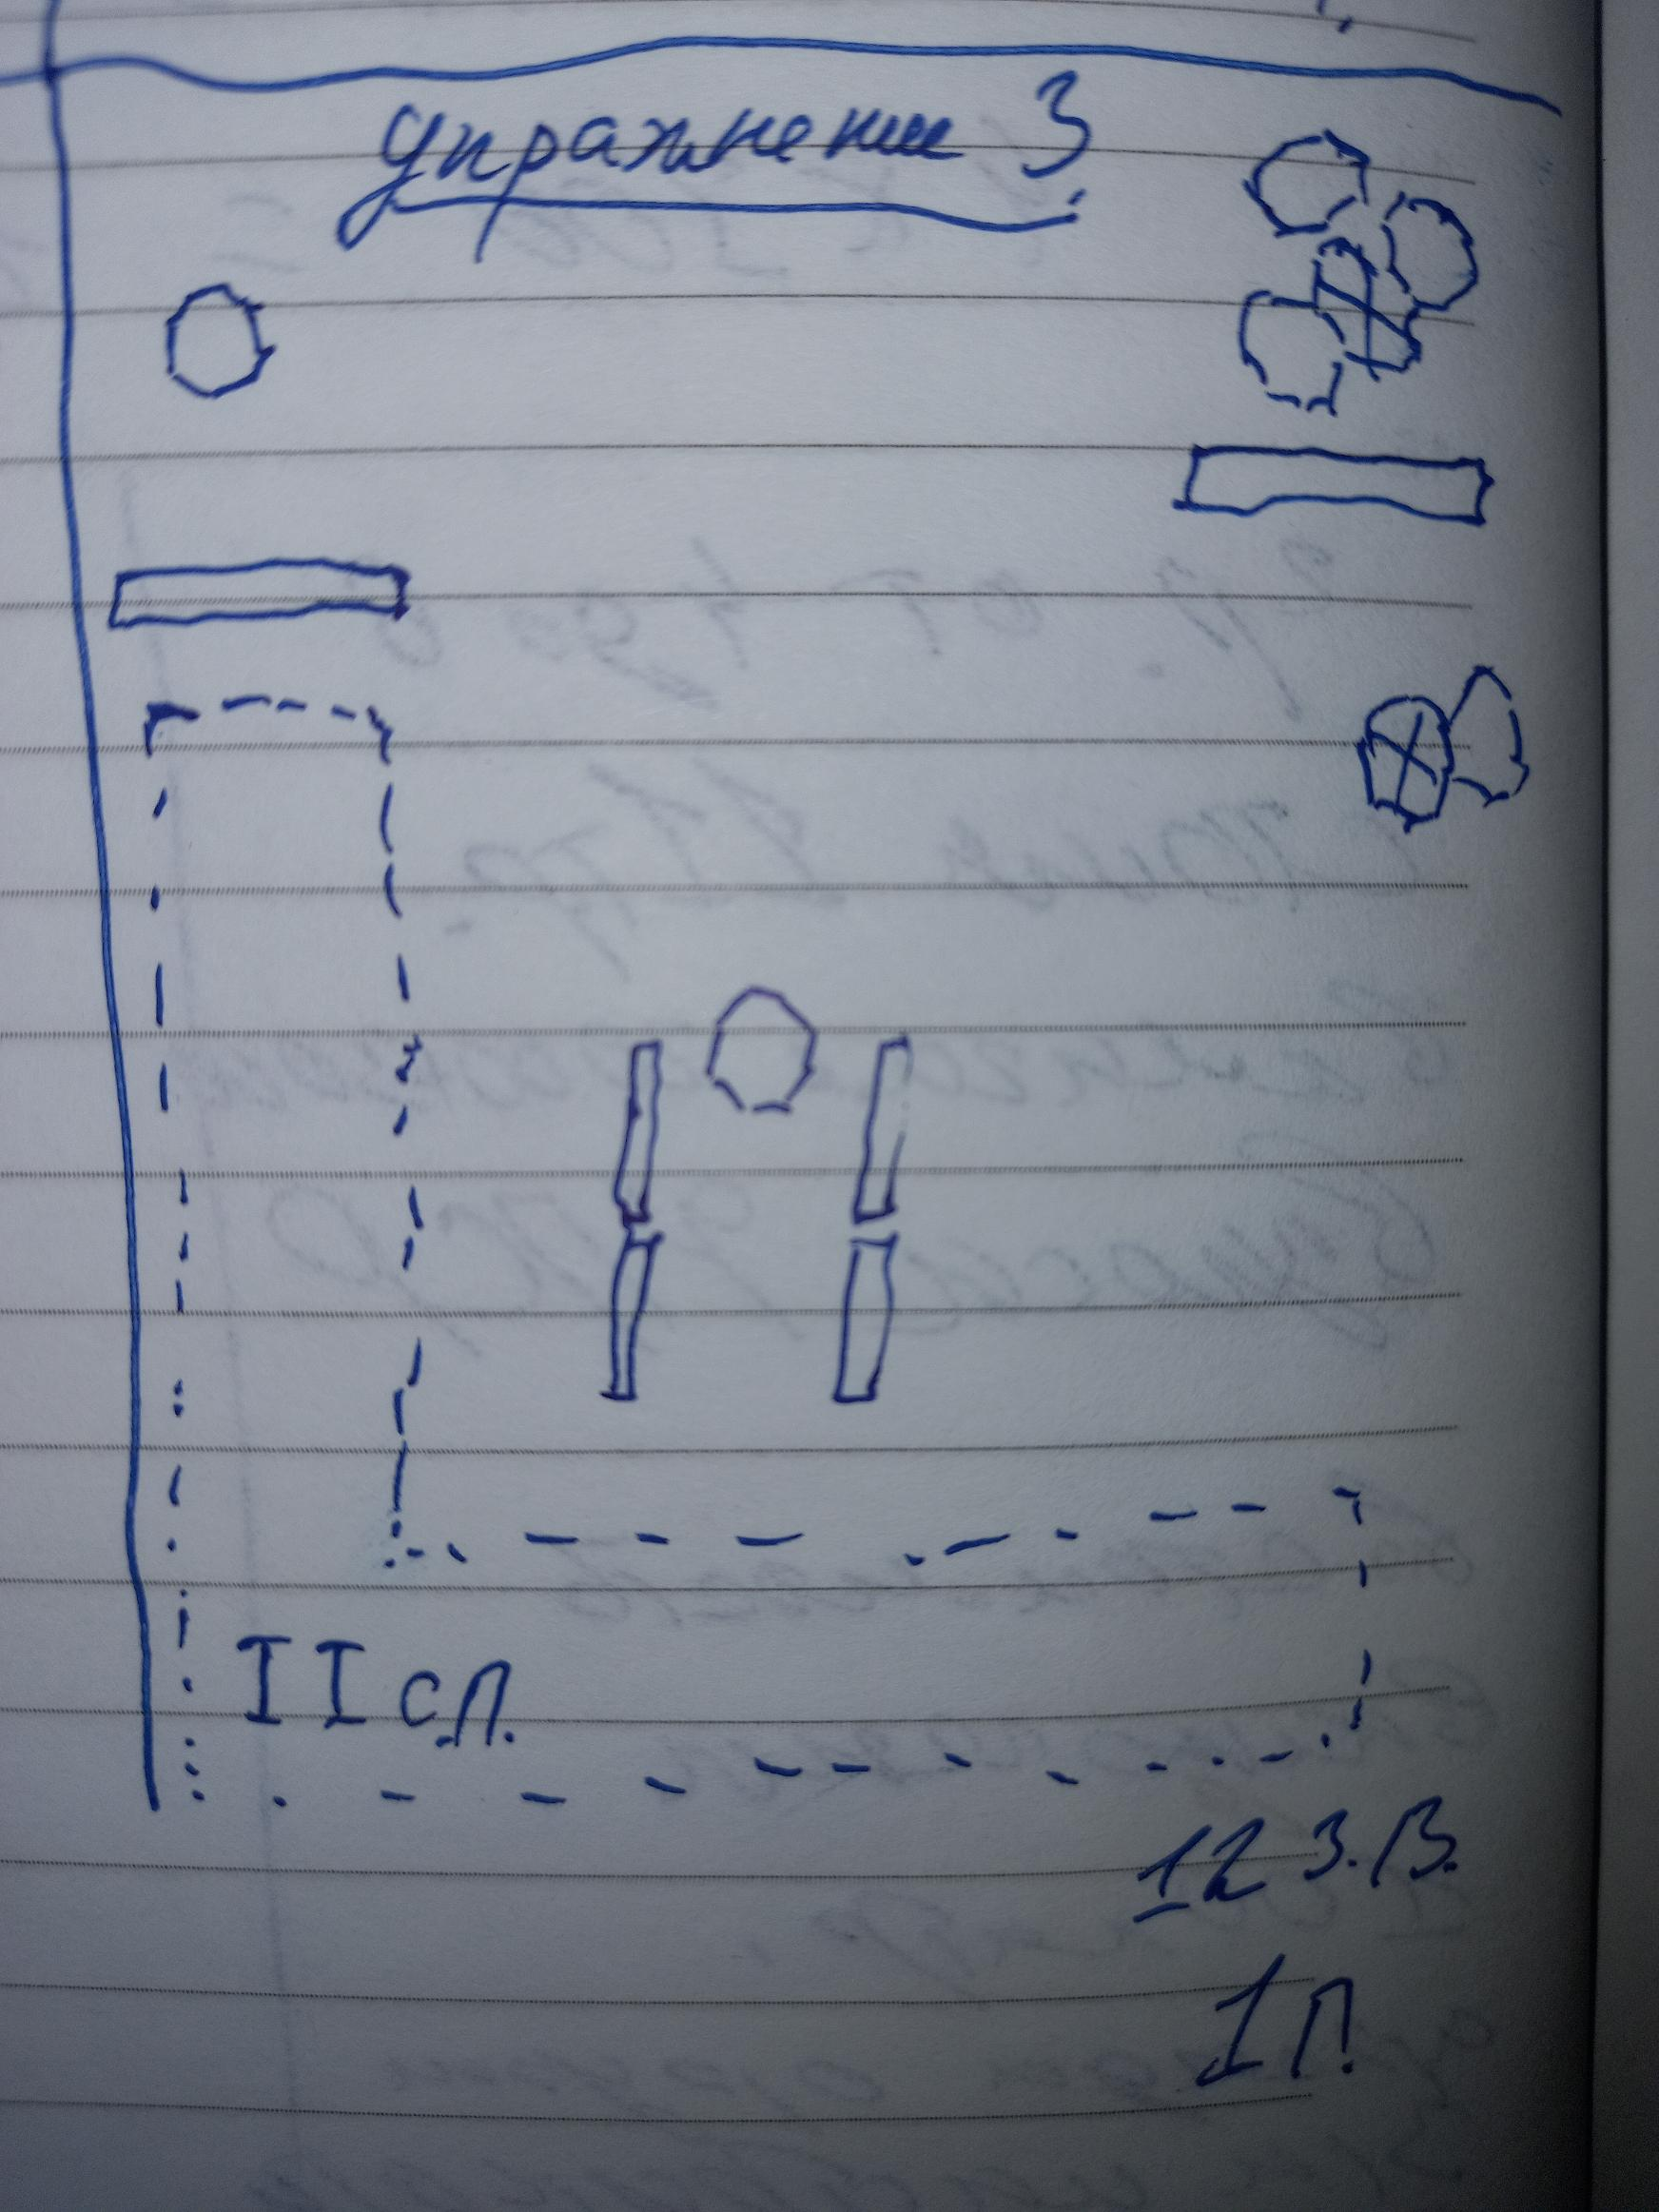 упражнение 3
II сп.
12 З.В.
1 П.